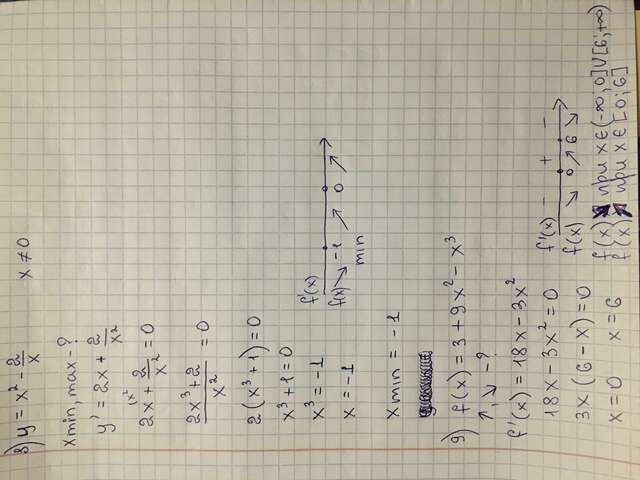 8) y = x² - 2/x   x ≠ 0
x min, max - ?
y' = 2x + 2/x²
(x² 2x + 2/x² = 0
2x³ + 2 / x² = 0
2(x³ + 1) = 0
x³ + 1 = 0
x³ = -1
x = -1
f'(x)
f(x) ↘ -1 ↗ 0 ↗
min
x min = -1
9) f(x) = 3 + 9x² - x³
↑, ↘ - ?
f'(x) = 18x - 3x²
18x - 3x² = 0
3x(6 - x) = 0
x = 0   x = 6
f'(x) - + -
f(x) ↘ 0 ↗ 6 ↘
f(x) ↘ при x ∈ (-∞; 0] ∪ [6; +∞)
f(x) ↗ при x ∈ [0; 6]